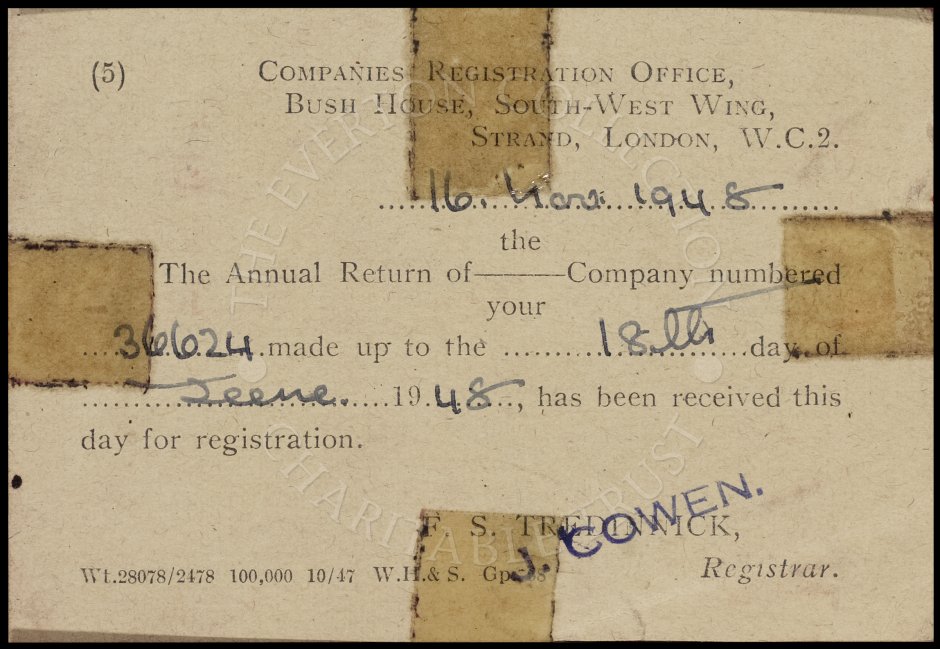 (5) COMPANIES REGISTRATION OFFICE,
BUSH HOUSE, SOUTH-WEST WING,
STRAND, LONDON, W.C.2.
16. Nov. 1948
the
The Annual Return of——Company numbered
your
36624 made up to the 18th day of
June. 1948, has been received this
day for registration.
F. S. TREDINNICK,
J. COWEN.
Registrar.
Wt.28078/2478 100,000 10/47 W.H.& S. Gp.
THE EVERTON COLLECTION
CHARITABLE TRUST